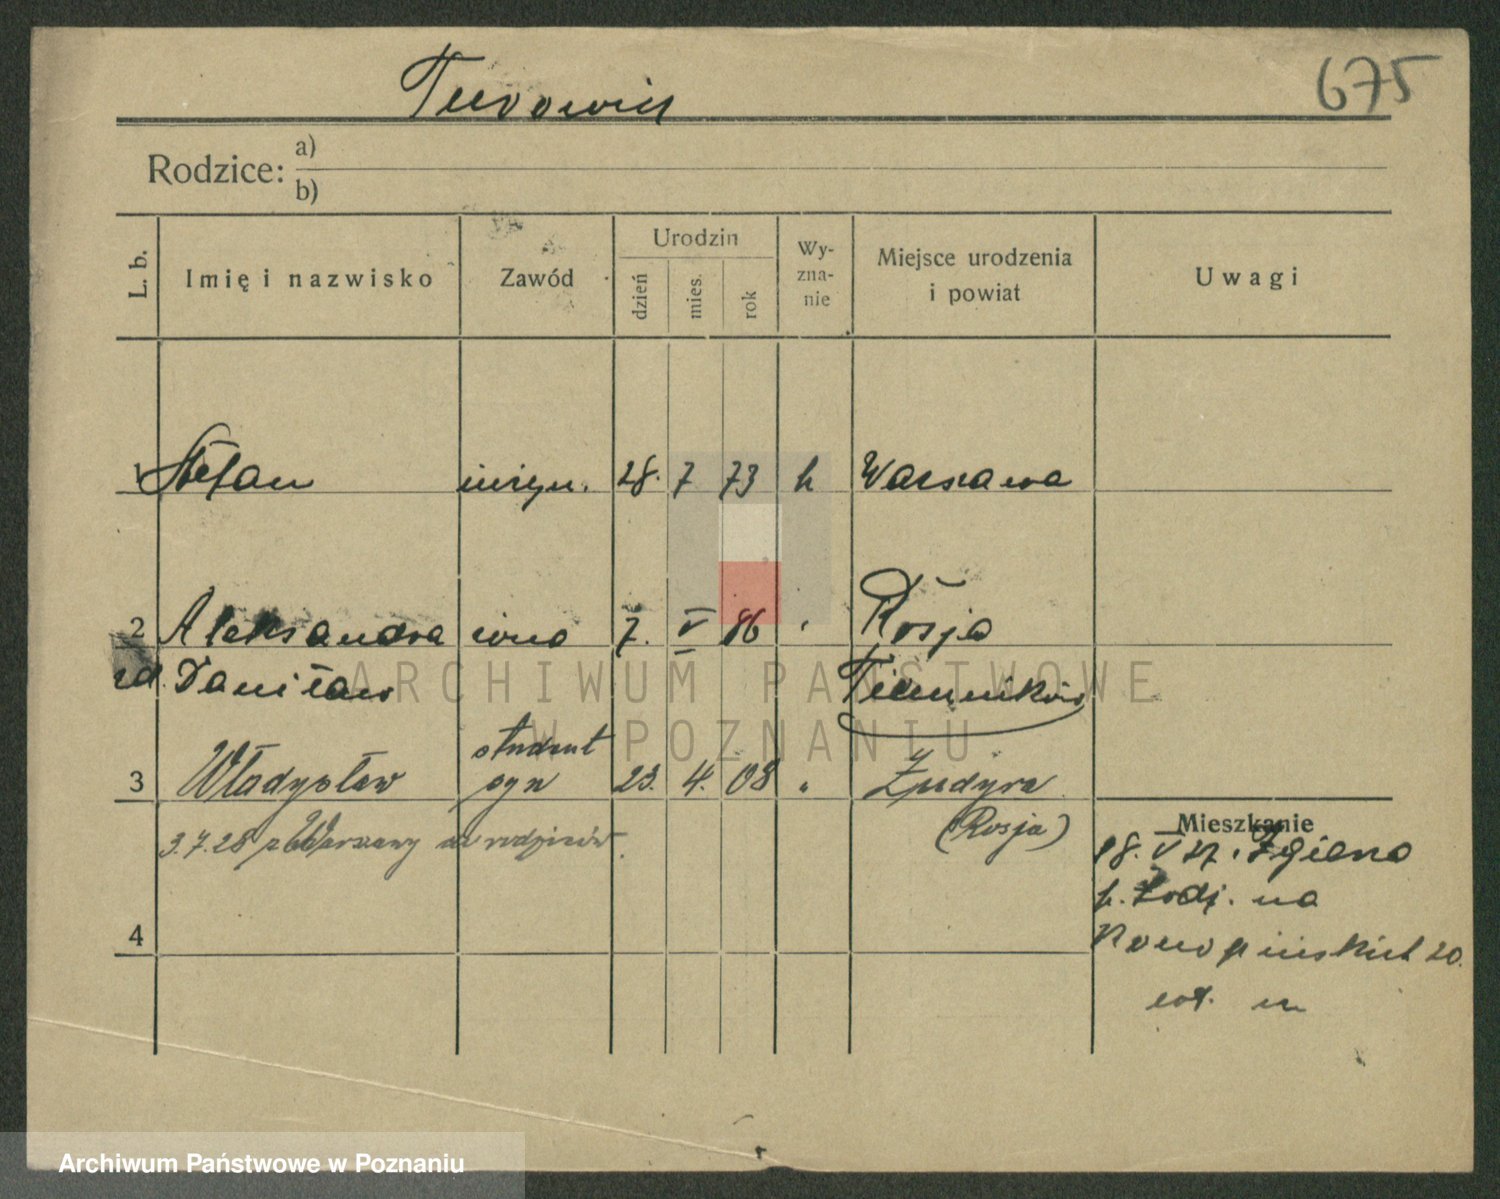 Turowicz
675
Rodzice: a)
b)
L. b. Imię i nazwisko Zawód Urodzin dzień mies. rok Wy-zna-nie Miejsce urodzenia i powiat Uwagi
1 Stefan inżyn. 28. 7 73 k Warszawa
2 Aleksandra żona 7. V 86 " Rosja
zd. Daniław Tiemników
student
3 Władysław syn 23. 4. 08 "
(Rosja)
3.7.28 z Warszawy do rodziców.
Mieszkanie
18. V 27. Zgierza
p. Łodzi. na
20.
4
ARCHIWUM PAŃSTWOWE
W POZNANIU
Archiwum Państwowe w Poznaniu